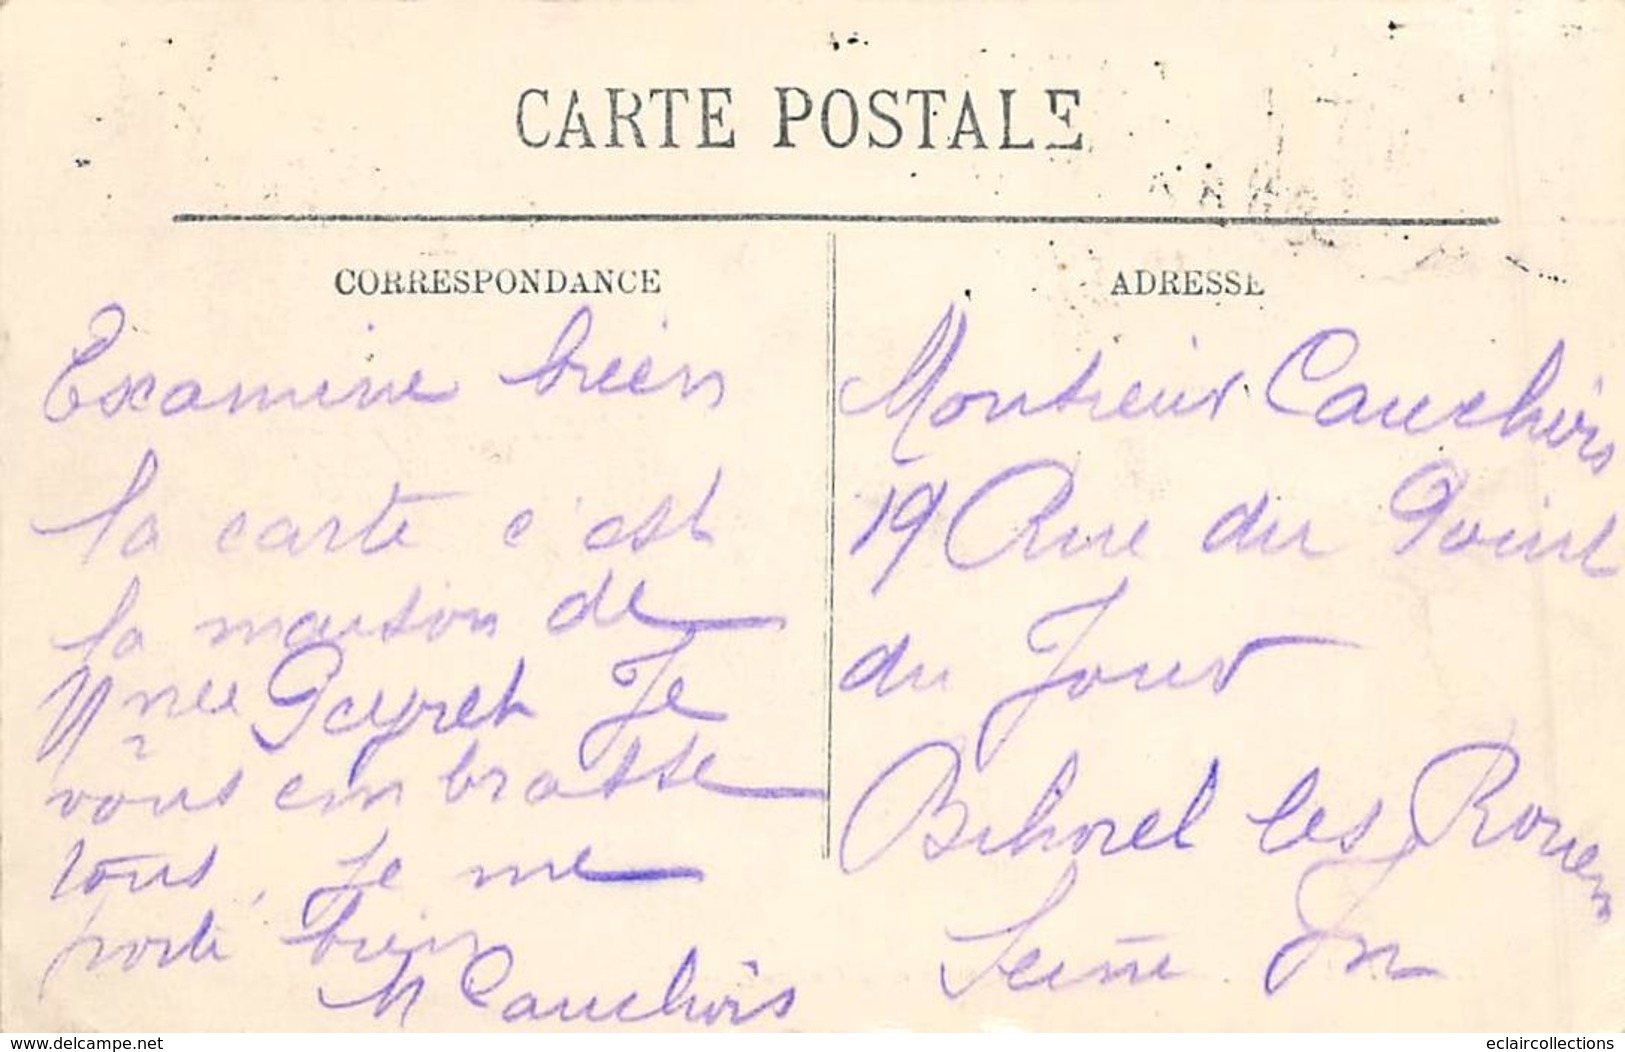 CARTE POSTALE
CORRESPONDANCE
Examine bien
la carte c'est
la maison de
Geyret Je
vous embrasse
tous, Je me
porte bien
M Cauchois
ADRESSE
Monsieur Cauchois
19 Rue du Point
du Jour
Bihorel les Rouen
Seine In
www.delcampe.net
eclaircollections